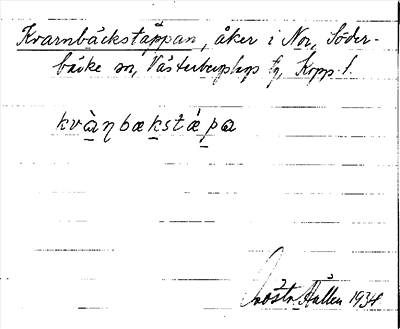 Kvarnbäckstäppan, åker i Nor, Söder-
bärke sn, Västerbergslags tg, Kopp. l.
kvàṇbækstǽpa
Gösta Hallén 1934